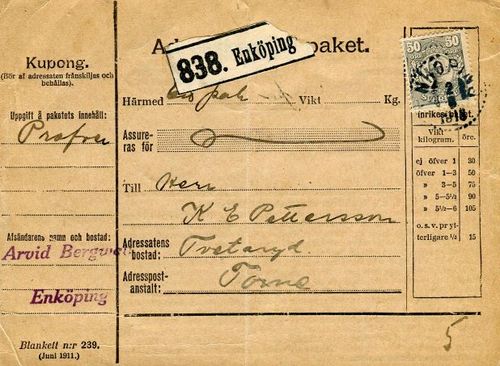 Kupong.
(Bör af adressaten frånskiljas och
behållas).
Uppgift å paketets innehåll:
Profver
Afsändarens namn och bostad:
Arvid
Enköping
Blankett n:r 239.
(Juni 1911.)
paket.
838. Enköping
Härmed Vikt Kg.
Assure-
ras för
Till Herr
K E Pettersson
Adressatens
bostad: Tvetaryd
Adresspost-
anstalt: Torna
50 50
Inrikes paket.
Vikt
kilogram. öre.
ej öfver 1 30
öfver 1-3 50
» 3-5 75
» 5-5½ 90
» 5½-6 105
o. s. v. pr yt-
terligare ½ 15
5